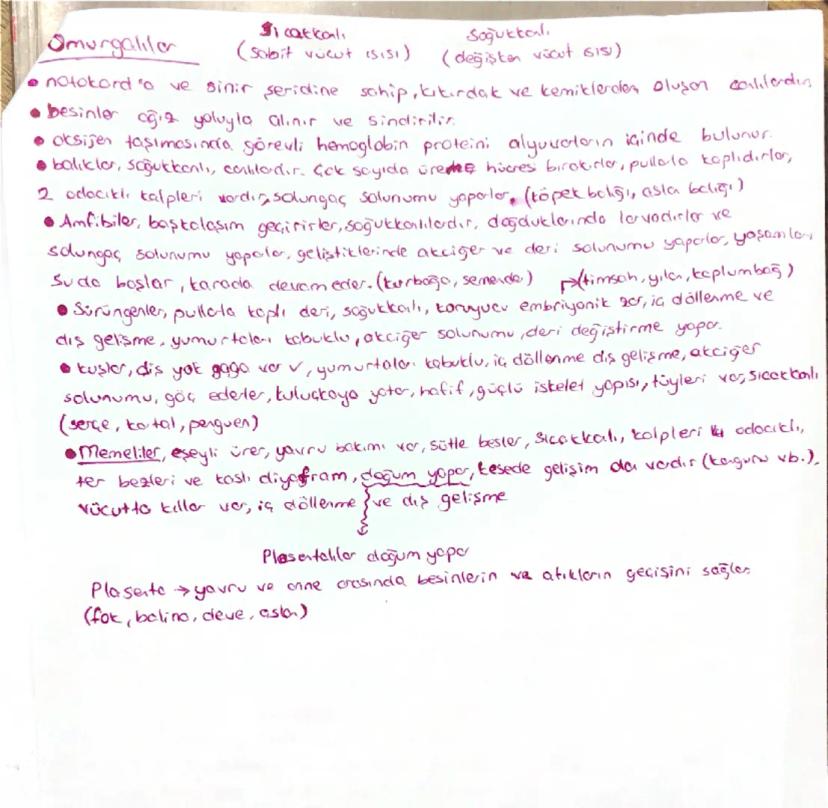 Omurgalılar
Sıcakkanlı
(sabit vücut ısısı)
Soğukkanlı
(değişken vücut ısısı)
• notokord'a ve sinir şeridine sahip, kıkırdak ve kemiklerden oluşan canlılardır.
• besinler ağız yoluyla alınır ve sindirilir.
• oksijen taşımasında görevli hemoglobin proteini alyuvarların içinde bulunur.
• balıklar, soğukkanlı, canlılardır. Çok sayıda üreme hücresi bırakırlar, pullarla kaplıdırlar,
2 odacıklı kalpleri vardır, solungaç solunumu yaparlar. (köpek balığı, aslan balığı)
• Amfibiler, başkalaşım geçirirler, soğukkanlılardır, doğduklarında larvadırlar ve
solungaç solunumu yaparlar, geliştiklerinde akciğer ve deri solunumu yaparlar, yaşamları
suda başlar, karada devam eder. (kurbağa, semender) → (timsah, yılan, kaplumbağ)
• Sürüngenler, pullarla kaplı deri, soğukkanlı, koruyucu embriyonik zar, iç döllenme ve
dış gelişme, yumurtaları kabuklu, akciğer solunumu, deri değiştirme yapar.
• kuşlar, diş yok gaga var, yumurtaları kabuklu, iç döllenme dış gelişme, akciğer
solunumu, göç ederler, kuluçkaya yatar, hafif, güçlü iskelet yapısı, tüyleri var, sıcakkanlı
(serçe, kartal, penguen)
• Memeliler, eşeyli ürer, yavru bakımı var, sütle besler, sıcakkanlı, kalpleri 4 odacıklı,
ter bezleri ve kaslı diyafram, doğum yapar, kesede gelişim da vardır (kanguru vb.),
vücutta kıllar var, iç döllenme ve dış gelişme
Plasentalılar doğum yapar
Plasenta → yavru ve anne arasında besinlerin ve atıkların geçişini sağlar
(fok, balina, deve, aslan)